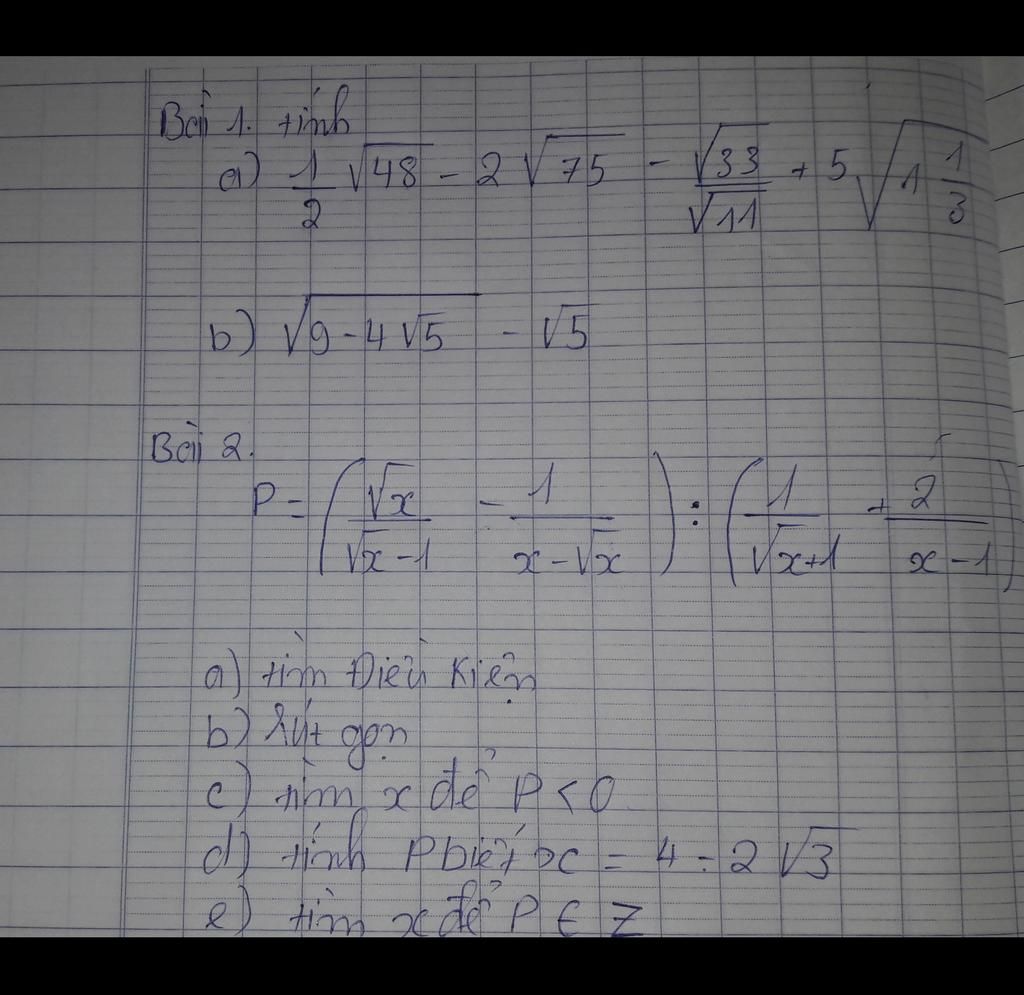 Bài 1. tính
a) 1/2 √48 - 2 √75 - √33/√11 + 5 √(1 1/3)
b) √(9 - 4√5) - √5
Bài 2.
P = (√x/(√x - 1) - 1/(x - √x)) : (1/(√x + 1) + 2/(x - 1))
a) tìm Điều Kiện
b) Rút gọn
c) tìm x để P < 0
d) tính P biết x = 4 - 2√3
e) tìm x để P ∈ Z